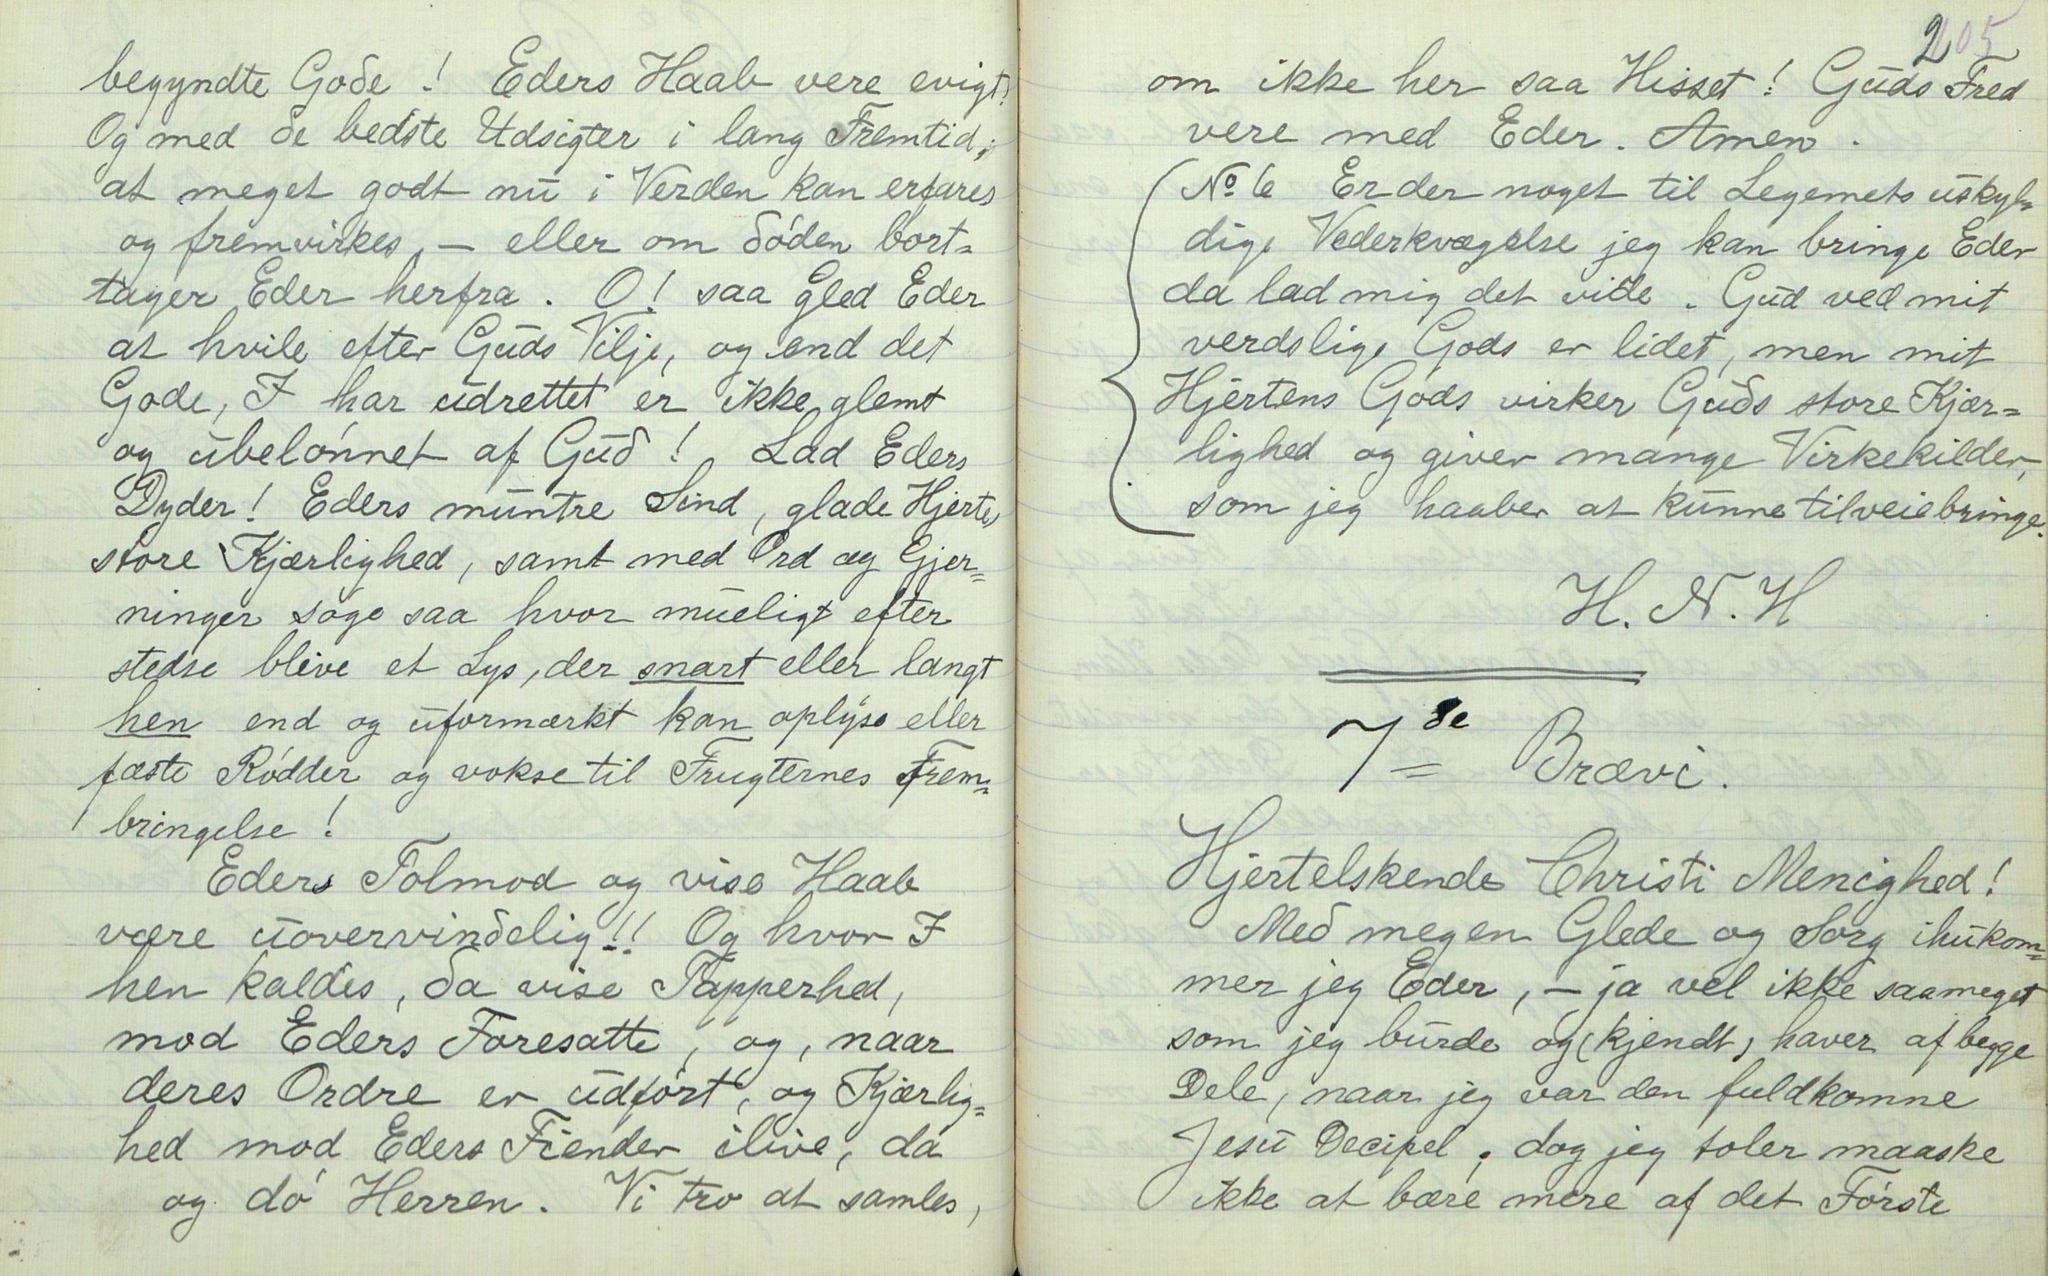 begyndte Gode! Eders Haab vere evigt!
Og med de bedste Udsigter i lang Fremtid,
at meget godt nu i Verden kan erfares
og fremvirkes, — eller om döden bort=
tager Eder herfra. O! saa gled Eder
at hvile efter Guds Vilje, og end det
Gode, I har udrettet er ikke glemt
og ubelönnet af Gud! Lad Eders
Dyder! Eders muntre Sind, glade Hjerte,
store Kjærlighed, samt med Ord og Gjer=
ninger söge saa hvor mueligt efter
stedse blive et Lys, der snart eller langt
hen end og uformærkt kan oplyse eller
fæste Rödder og vokse til Frugternes Frem=
bringelse!
Eders Tolmod og vise Haab
være uovervindelig!! Og hvor I
hen kaldes, da vise Tapperhed,
mod Eders Foresatte, og, naar
deres Ordre er udfört, og Kjærlig=
hed mod Eders Fiender ilive, da
og dö Herren. Vi tro at samles,
205
om ikke her saa Hisset! Guds Fred
vere med Eder. Amen.
No. 6 Er der noget til Legemets uskyl=
dige Vederkvægelse jeg kan bringe Eder
da lad mig det vide. Gud ved mit
verdslige Gods er lidet, men mit
Hjertens Gods virker Guds store Kjær=
lighed og giver mange Virkekilder,
som jeg haaber at kunne tilveiebringe.
H. N. H
7de Brævi.
Hjertelskende Christi Menighed!
Med megen Glede og Sorg ihukom=
mer jeg Eder, — ja vel ikke saameget
som jeg burde og (kjendt) haver af begge
Dele, naar jeg var den fuldkomne
Jesu Decipel, dog jeg toler maaske
ikke at bære mere af det Förste